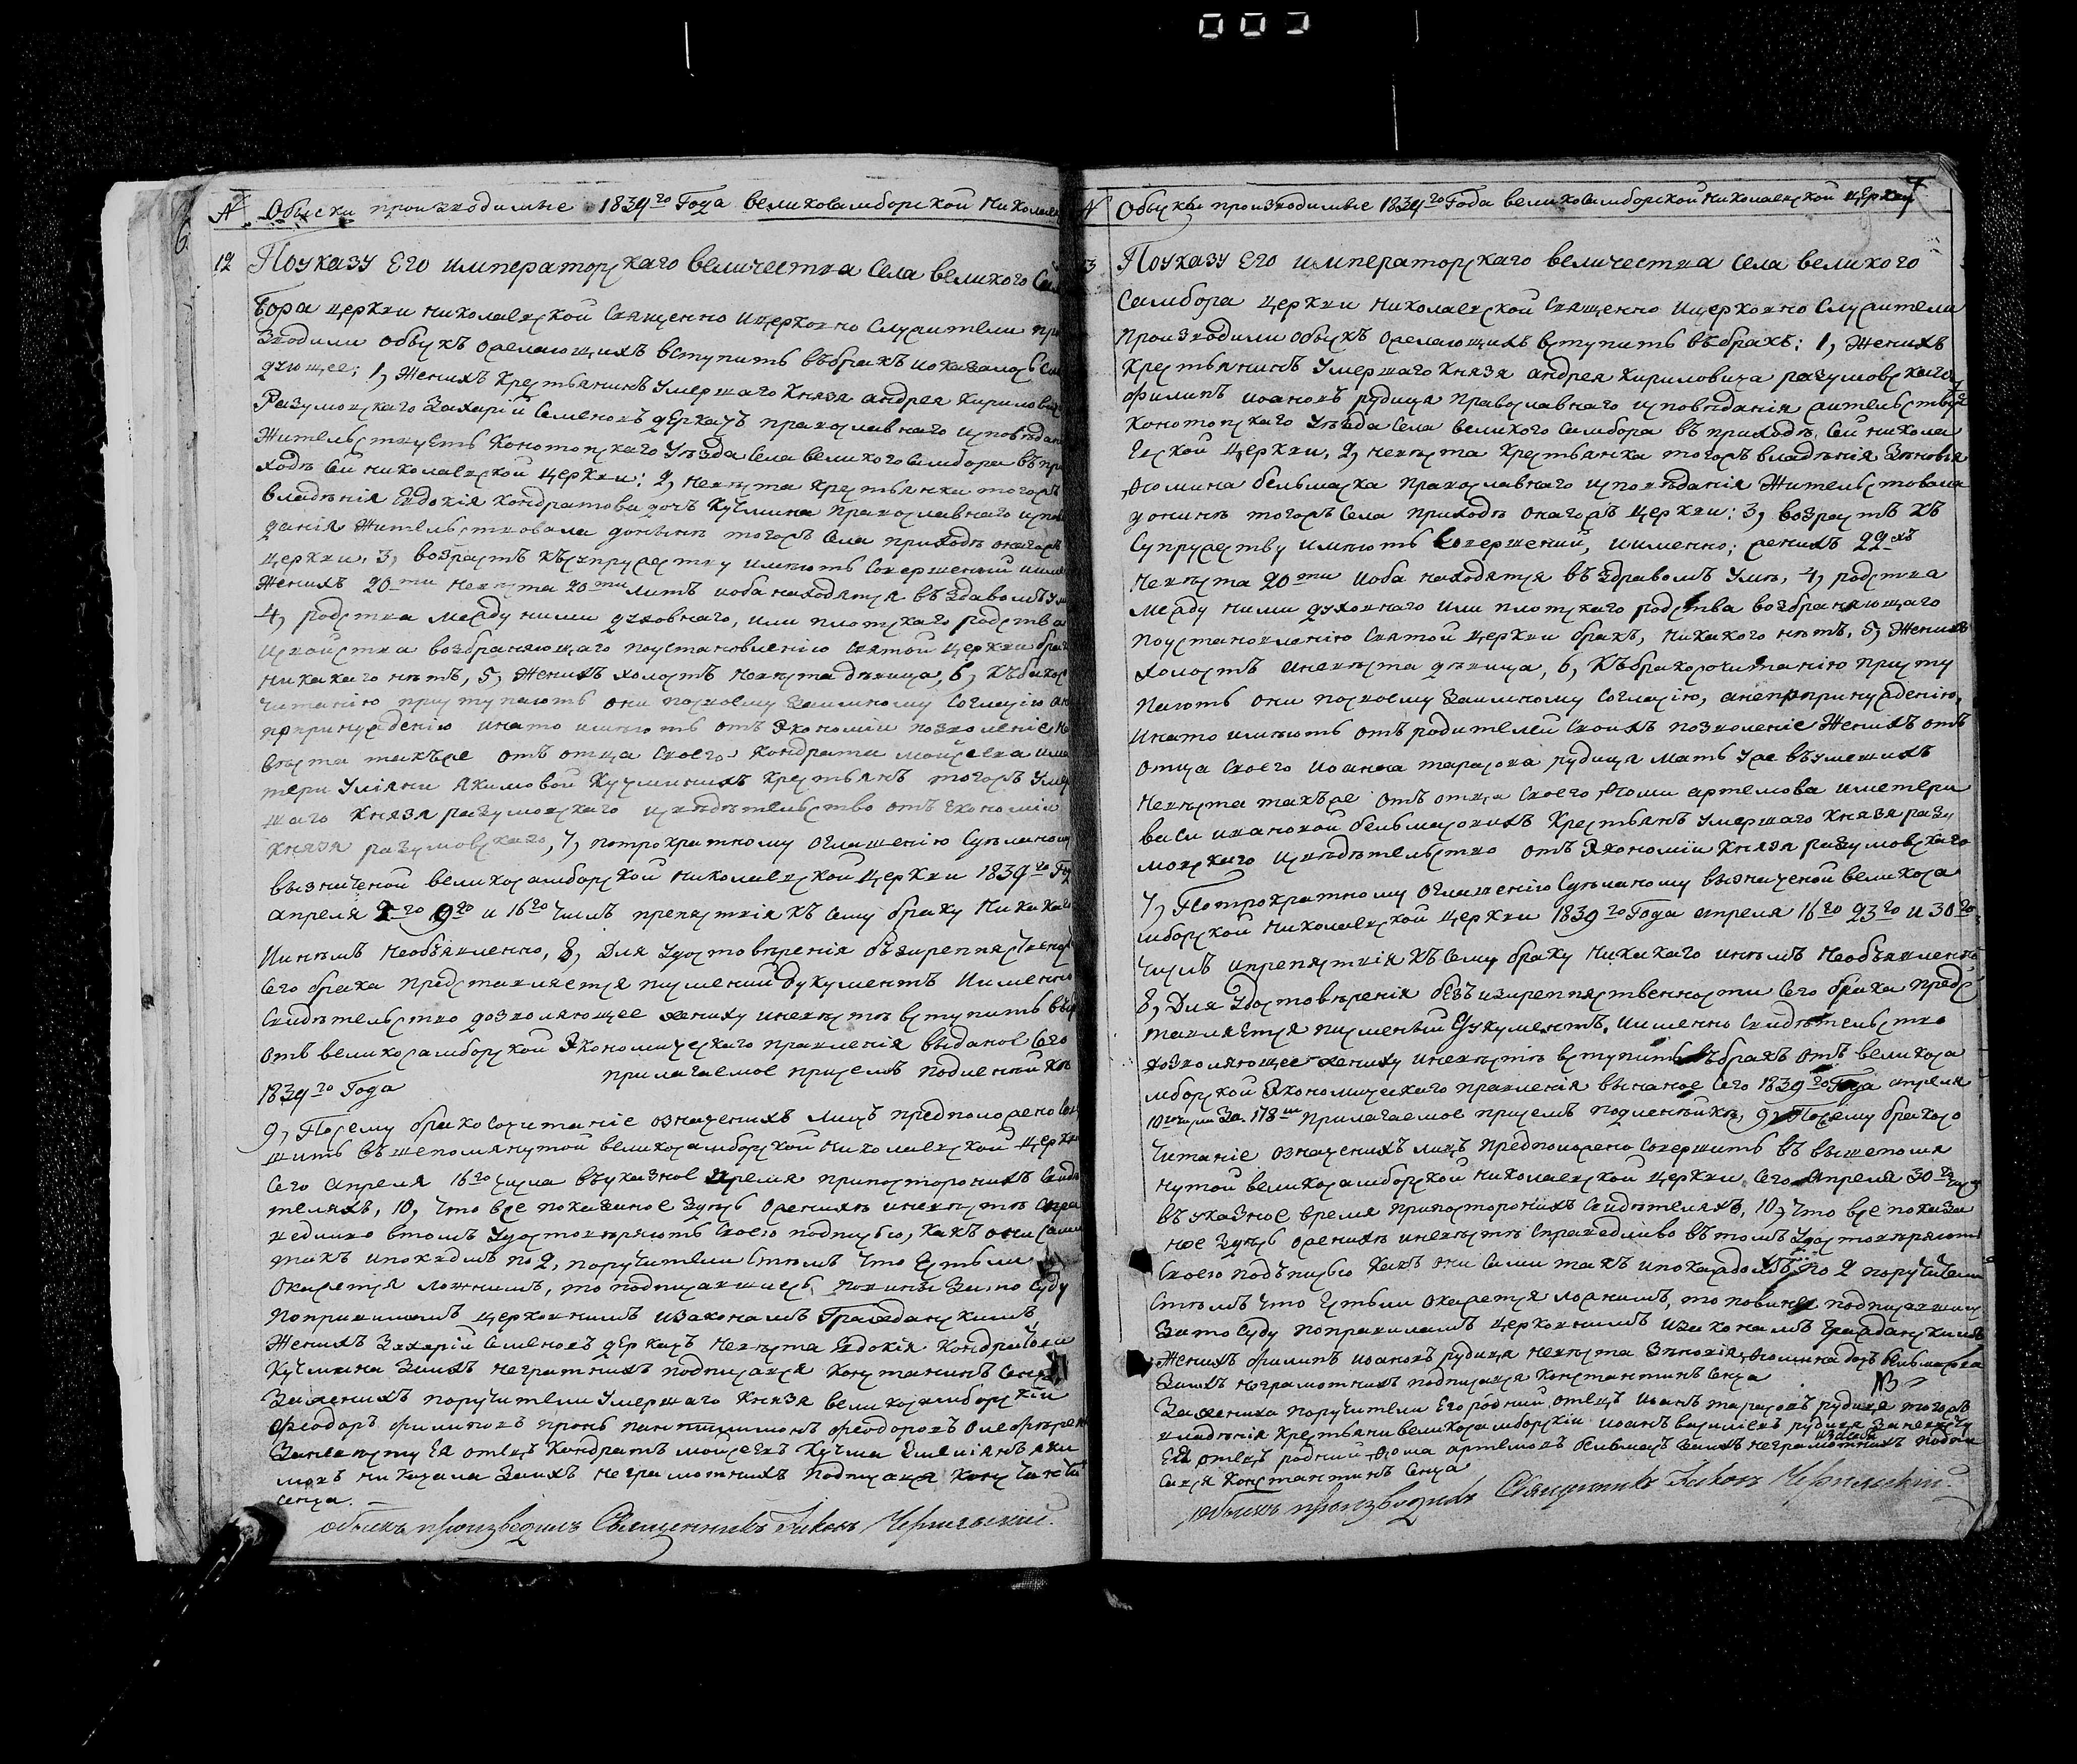 007
№ Обыски произходимые 1839го Года великосамборской Николаев
6
12 Поуказу Его императорскаго величества села великого Сам
бора церкви николаевской Священно ицерковно служители про
изходили обыскъ ожелающихъ вступить въбракъ иоказалось слѣ
дующее; 1, Женихъ Крестьянинъ умершаго Князя андрея Кирилови
Разумовскаго Захарій Семеновъ деркачъ православнаго исповѣдан
Жительствуетъ Конотопскаго Уѣзда села великого самбора въпри
ходѣ сей николаевской церкви: 2, невѣста крестьянка тогожъ
владѣнія Евдокія Кондратова дочь Кучмина православнаго испов
данія Жительствовала донынѣ тогожъ села приходѣ онагожъ
церкви, 3, возрастъ къ супружеству имѣютъ совершенный имен
Женихъ 20ти невѣста 20ти лѣтъ иоба находятся въздавомъ ум
4, родства между ними духовнаго, или плотскаго родства
исвойства возбраняющаго поустановленію святой церкви бра
никакаго нѣтъ, 5, Женихъ холостъ невѣста дѣвица, 6, къбракосо
читанію приступаютъ они посвоему взаимному согласію ан
попринужденію инато имѣютъ отъ Экономіи позволеніе не
вѣста такъже отъ отца своего Кондрата мойсеева има
тери Уліяни Якимовой Кучминихъ крестьянъ тогожъ Умер
шаго Князя разумовскаго исвѣдѣтельство отъ Економіи
Князя разумовскаго, 7, потрократному оглашенію сдѣланому
вызначеной великосамборской николаевской церкви 1839го Год
апреля 2го 9го и 16го числъ препятствія къ сему браку никакаго
Никѣмъ необъявленно, 8, Для удостовѣренія безпрепятственно
сего брака представляется писменный Документъ Именно
Свидѣтельство дозволяющее жениху иневѣстѣ вступить въбр
отъ великосамборской Экономическаго правленія выданое сего
1839го Года прилагаемое присемъ подленыикъ
9, Посему бракосочитаніе означеныхъ лицъ предположено сов
шить въшепомянутой великосамборской Николаевской церкви
сего апреля 16го числа въуказное время припостороныхъ свидѣ
теляхъ, 10, что все показаное здѣсь ожених иневѣстѣ спра
ведливо втомъ удостовѣряютъ своею подписью, какъ они сами
такъ ипокаждомъ по 2, поручители стѣмъ что естьли
окажется ложнымъ, то подписавшіесь повинны зато суду
поправиламъ церковнымъ изаконамъ Гражданскимъ
Женихъ Захарій Семеновъ деркачъ Невѣста Евдокія Кондратова
Кучмина заихъ неграмотныхъ подписался Константинъ Сенча
Заженихъ поручители Умершаго Князя великосамборскіи
Феодоръ филиповъ пронь пантилимонъ феодоровъ Олефѣрен
Заневѣсту Ея отецъ Кондратъ мойсеевъ Кучма Емеліянъ яки
мовъ заихъ неграмотныхъ подписался Константи
Сенча.
Обыскъ производилъ Священникъ Никонъ
№ Обыски произходимые 1839го Года великосамборской николаевской церкви 7
13 Поуказу Его императорскаго величества села великого
Самбора церкви николаевской Священно ицерковно служители
произходили обыскъ ожелающихъ вступить въбракъ: 1, Женихъ
Крестьянинъ Умершаго Князя андрея Кириловича разумовскаго
филипъ иоановъ рудиця православнаго исповѣданія жительствуе
Конотопскаго Уѣзда села великого самбора въприходѣ сей никола
евской церкви, 2, невѣста крестьянка тогожъ владѣнія Зѣновія
Фомина бельмаска православнаго исповѣданія Жительствовала
донинѣ тогожъ села приходѣ онагожъ церкви: 3, возрастъ къ
супружеству имѣютъ совершеній, иименно; женихъ 22хъ
невѣста 20ти иоба находятся въздравомъ умѣ, 4, родства
между ними духовнаго или плотскаго родства возбраняющаго
поустановленію святой церкви бракъ, никакого нѣтъ, 5, Женихъ
холостъ иневѣста дѣвица, 6, къбракосочитанію присту
паютъ они посвоему взаимному согласію, анепопринужденію,
инато имѣютъ отъ родителей своихъ позволеніе Женихъ отъ
отца своего иоанна тарасова рудиця мать уже въумешихъ
невѣста такъже отъ отца своего Фоми артемова иматери
васи ивановой бельмасовихъ крестьянъ умершаго князя разу
мовскаго исвѣдѣтельство отъ Экономіи князя разумовскаго
7, Потрократному оглашенію сдѣланому вызначеной великоса
мборской николаевской церкви 1839го Года апреля 16го 23го и 30го
числъ ипрепятствія къ сему браку никакаго никѣмъ необъявленно
8, Для удостовѣренія безъизпрепятственности сего брака предс
тавляется писменый Документъ, иименно свидѣтельство
дозволяющее жениху иневѣстѣ вступить въбракъ отъ великоса
мборской Экономическаго правленія выданое сего 1839го Года апреля
10 числа за. 178м прилагаемое присемъ подленыикъ, 9, Посему бракосо
читаніе означеныхъ лицъ предположено совершить въ вышепомя
нутой великосамборской николаевской церкви сего апреля 30го числа
въ указное время припостороныхъ свидѣтеляхъ, 10, что все показа
ное здѣсь ожених иневѣстѣ справедливо въ томъ удостовѣряютъ
своею подъписью какъ они сами такъ ипокаждомъ по 2 поручители
стѣмъ что естьли окажется ложнымъ, то повины подписавшіесь
зато суду поправиламъ церковнымъ изаконамъ гражданскимъ
Женихъ филипъ иоановъ рудиця невѣста Зѣновія Фомина дочь бельмасова
заихъ неграмотныхъ подписался Константинъ Сенча
Зажениха поручители Его родный отецъ иоанъ тарасовъ рудиця тогожъ
владѣнія крестьяни великосамборскіи иоанъ василіевъ рудиця Заневѣсту
Ея отецъ родный Фома артемовъ бельмасъ заихъ неграмотныхъ подпи
сался Константинъ Сенча
Обыскъ производилъ Священникъ Никонъ